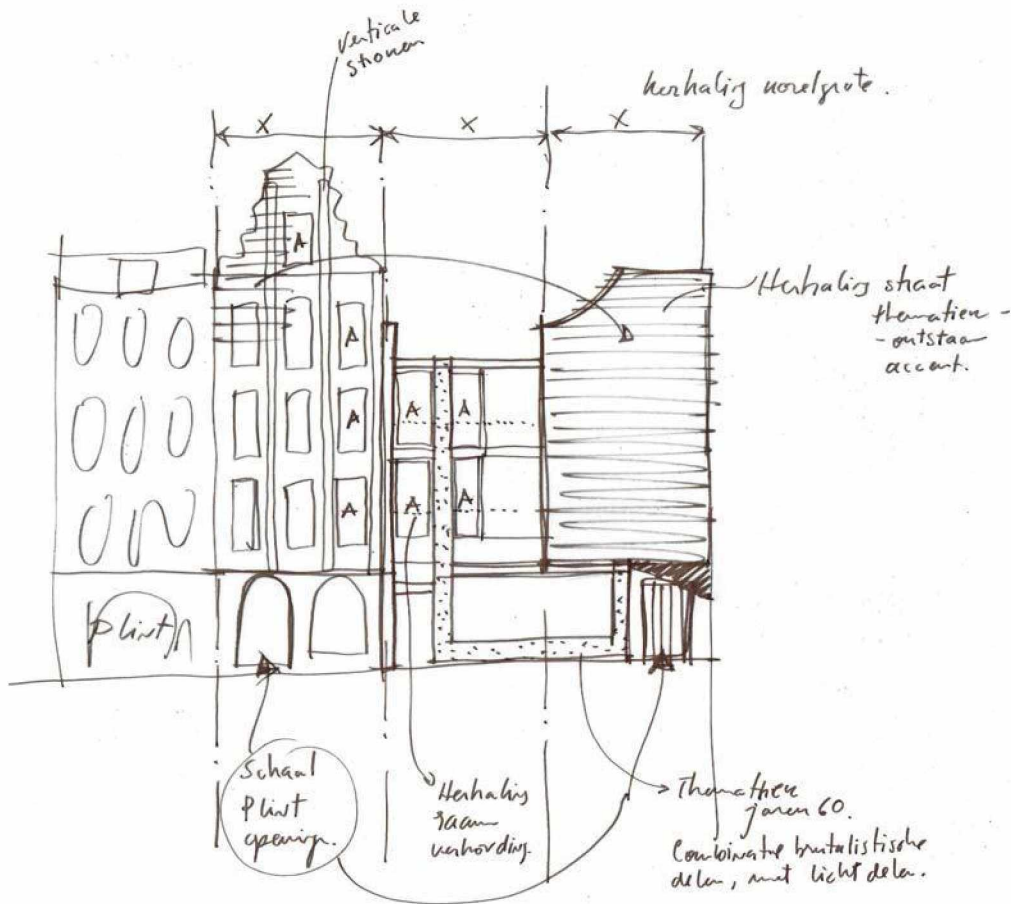 verticale
herhaling korrelgrote.
X
X
X
A
A
A
A
A
A
A
A
Herhaling straat
thematieken -
- ontstaan
accent.
plint
Schaal
Plint
openingen.
Herhaling
raam
verhouding.
Thematieken
jaren 60.
Combinatie brutalistische
delen, met licht delen.